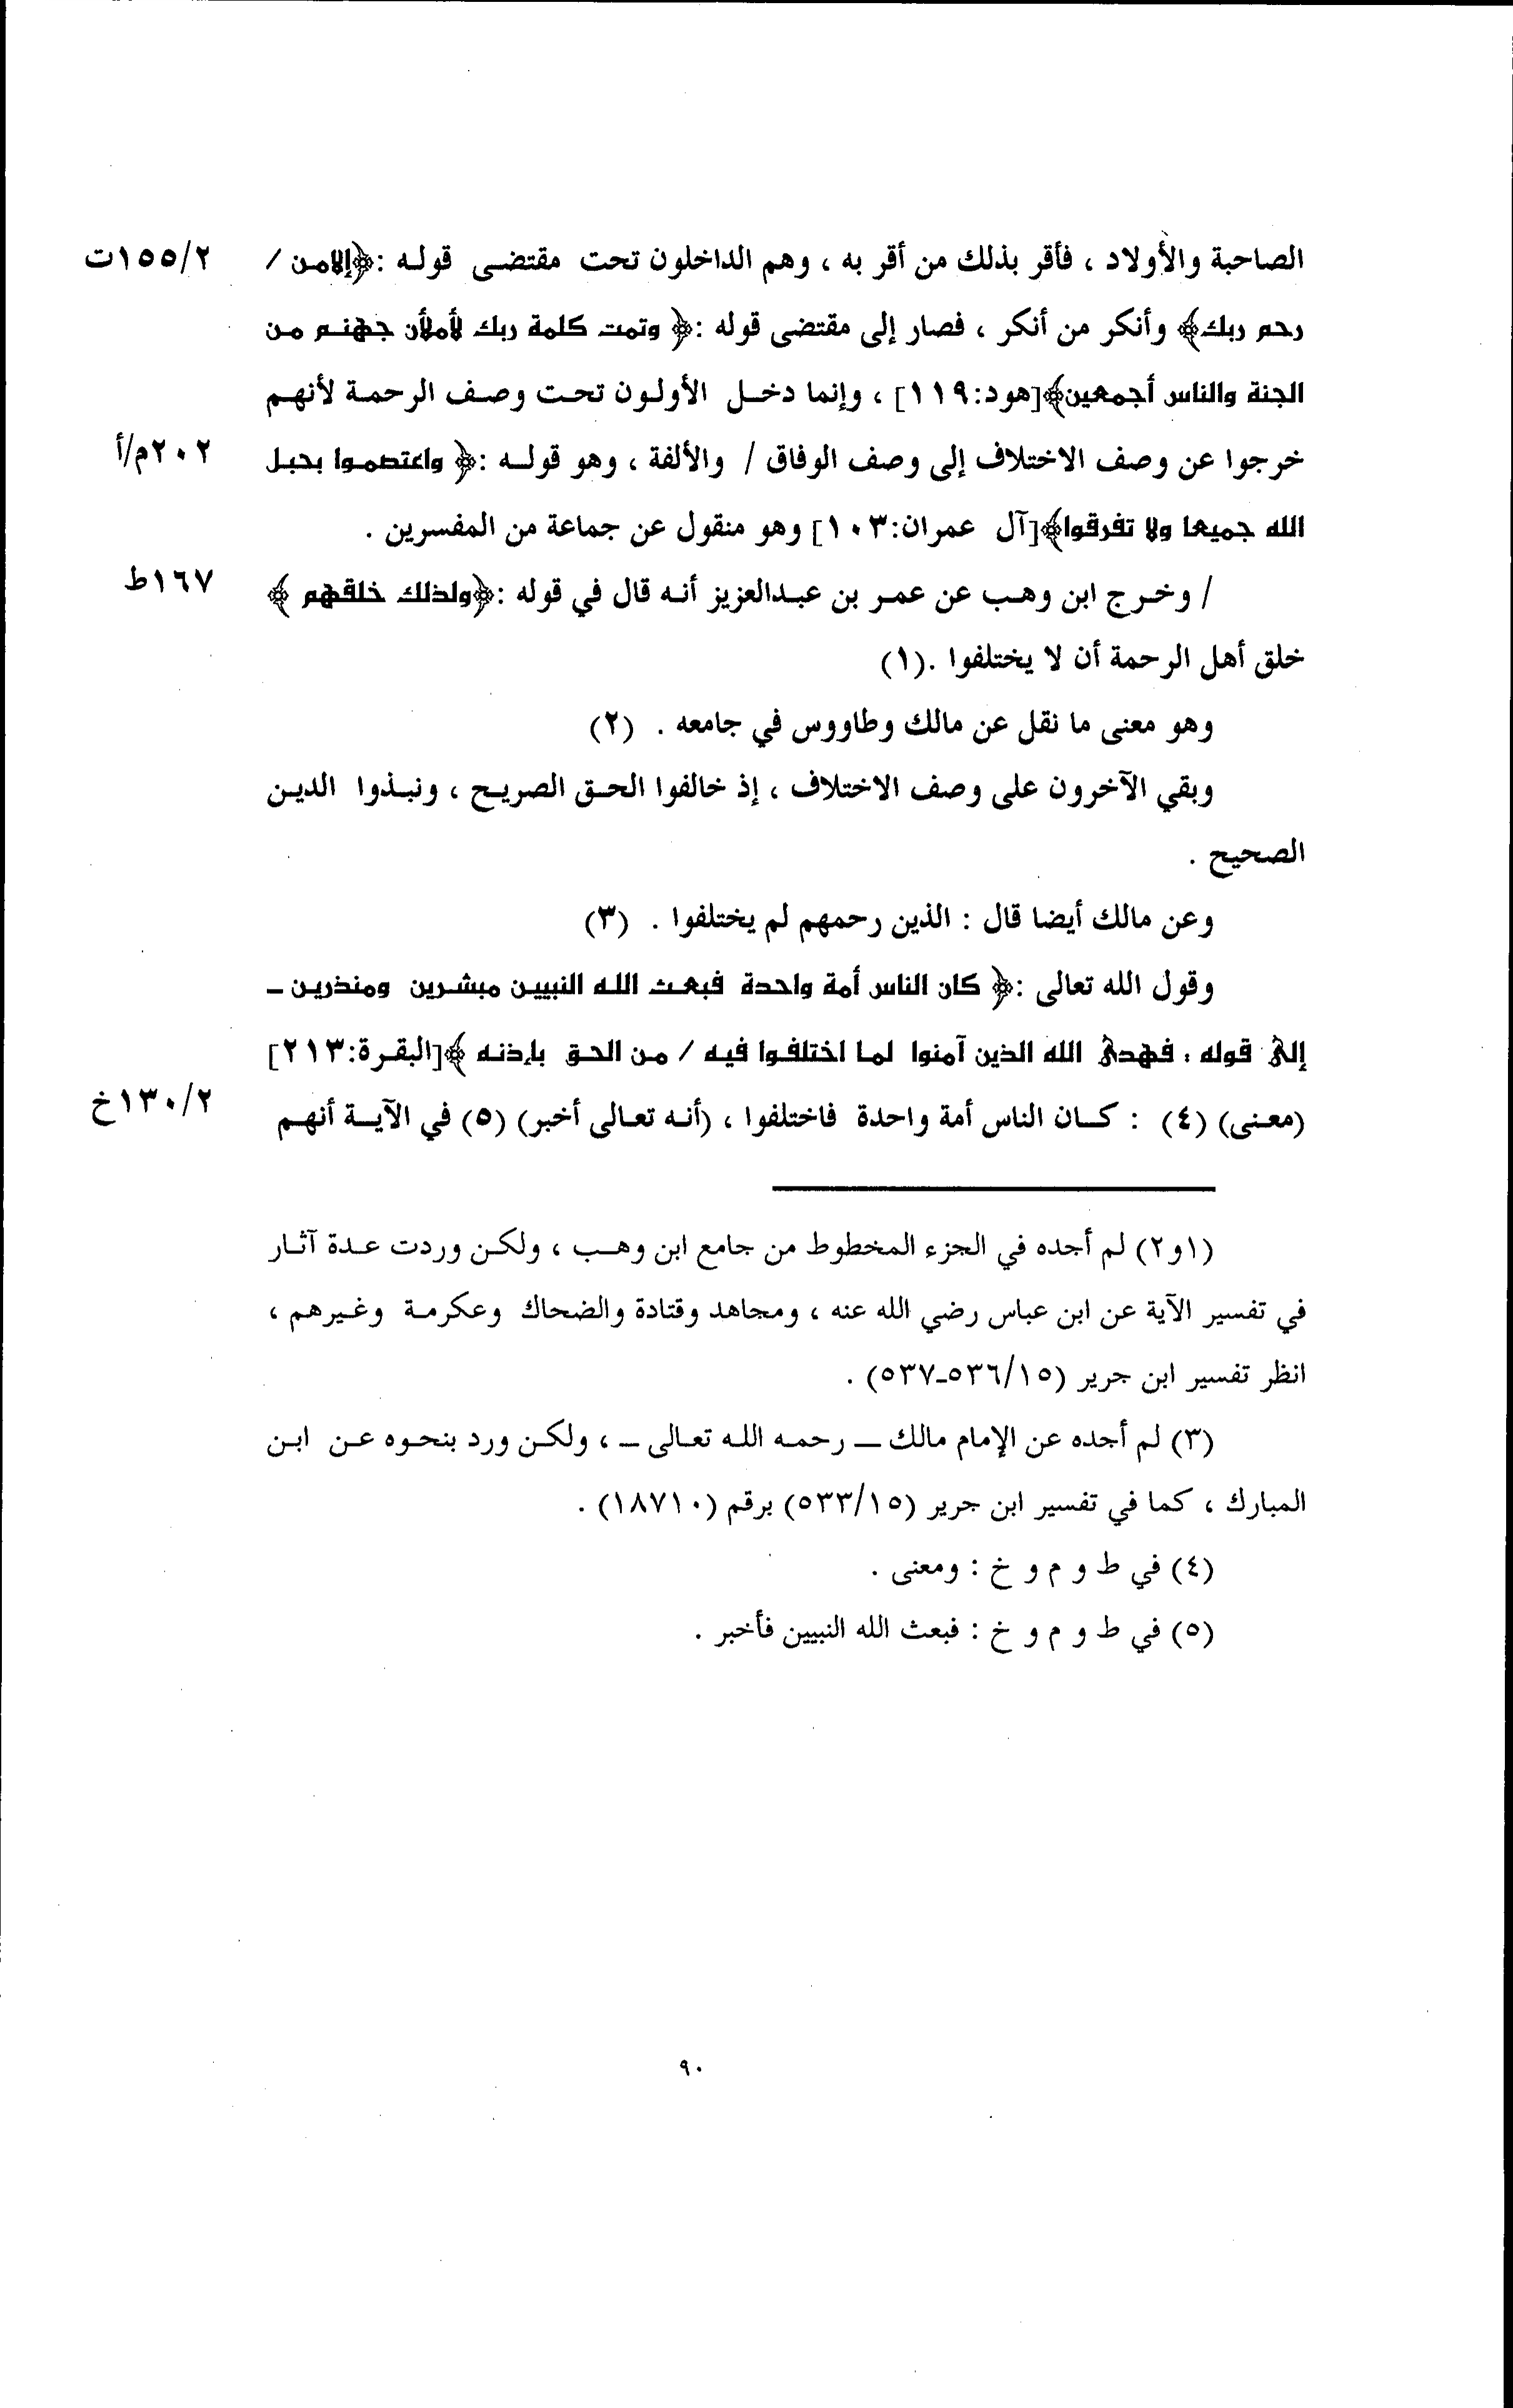 الصاحبة والأولاد ، فأقر بذلك من أقر به ، وهم الداخلون تحت مقتضى قوله :﴿إلامن / ١٥٥/٢ت
رحم ربك﴾ وأنكر من أنكر ، فصار إلى مقتضى قوله :﴿ وتمت كلمة ربك لأملأن جهنم من
الجنة والناس أجمعين﴾[هود:١١٩] ، وإنما دخل الأولون تحت وصف الرحمة لأنهم
خرجوا عن وصف الاختلاف إلى وصف الوفاق / والألفة ، وهو قوله :﴿ واعتصموا بحبل ٢٠٢م/أ
الله جميعا ولا تفرقوا﴾[آل عمران:١٠٣] وهو منقول عن جماعة من المفسرين .
/ وخرج ابن وهب عن عمر بن عبدالعزيز أنه قال في قوله :﴿ولذلك خلقهم ﴾ ١٦٧ط
خلق أهل الرحمة أن لا يختلفوا .(١)
وهو معنى ما نقل عن مالك وطاووس في جامعه . (٢)
وبقي الآخرون على وصف الاختلاف ، إذ خالفوا الحق الصريح ، ونبذوا الدين
الصحيح .
وعن مالك أيضا قال : الذين رحمهم لم يختلفوا . (٣)
وقول الله تعالى :﴿ كان الناس أمة واحدة فبعث الله النبيين مبشرين ومنذرين ـ
إلى قوله : فهدى الله الذين آمنوا لما اختلفوا فيه / من الحق بإذنه ﴾[البقرة:٢١٣]
(معنى) (٤) : كان الناس أمة واحدة فاختلفوا ، (أنه تعالى أخبر) (٥) في الآية أنهم ١٣٠/٢خ
(١و٢) لم أجده في الجزء المخطوط من جامع ابن وهب ، ولكن وردت عدة آثار
في تفسير الآية عن ابن عباس رضي الله عنه ، ومجاهد وقتادة والضحاك وعكرمة وغيرهم ،
انظر تفسير ابن جرير (٥٣٦/١٥ـ٥٣٧) .
(٣) لم أجده عن الإمام مالك ـ رحمه الله تعالى ـ ، ولكن ورد بنحوه عن ابن
المبارك ، كما في تفسير ابن جرير (٥٣٣/١٥) برقم (١٨٧١٠) .
(٤) في ط و م و خ : ومعنى .
(٥) في ط و م و خ : فبعث الله النبيين فأخبر .
٩٠